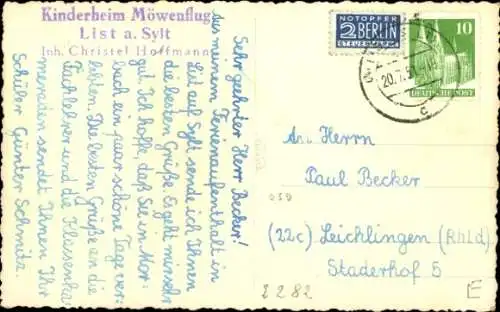 Kinderheim Möwenflug
List a. Sylt
Inh. Christel Hoffmann
Sehr geehrter Herr Becker!
Aus meinem Ferienaufenthalt in
List auf Sylt sende ich Ihnen
die besten Grüße. Es geht mir sehr
gut. Ich hoffe, daß Sie in Mor-
bach ein paar schöne Tage ver-
lebten. Die besten Grüße an die
Fachlehrer und die Klassenka-
meraden sendet Ihnen Ihr
Schüler Günter Schmitz.
NOTOPFER
2 BERLIN
STEUERMARKE
20.7.5
c
10
DEUTSCHE POST
An Herrn
Paul Becker
(22c) Leichlingen (Rhld)
Staderhof 5
2282
E